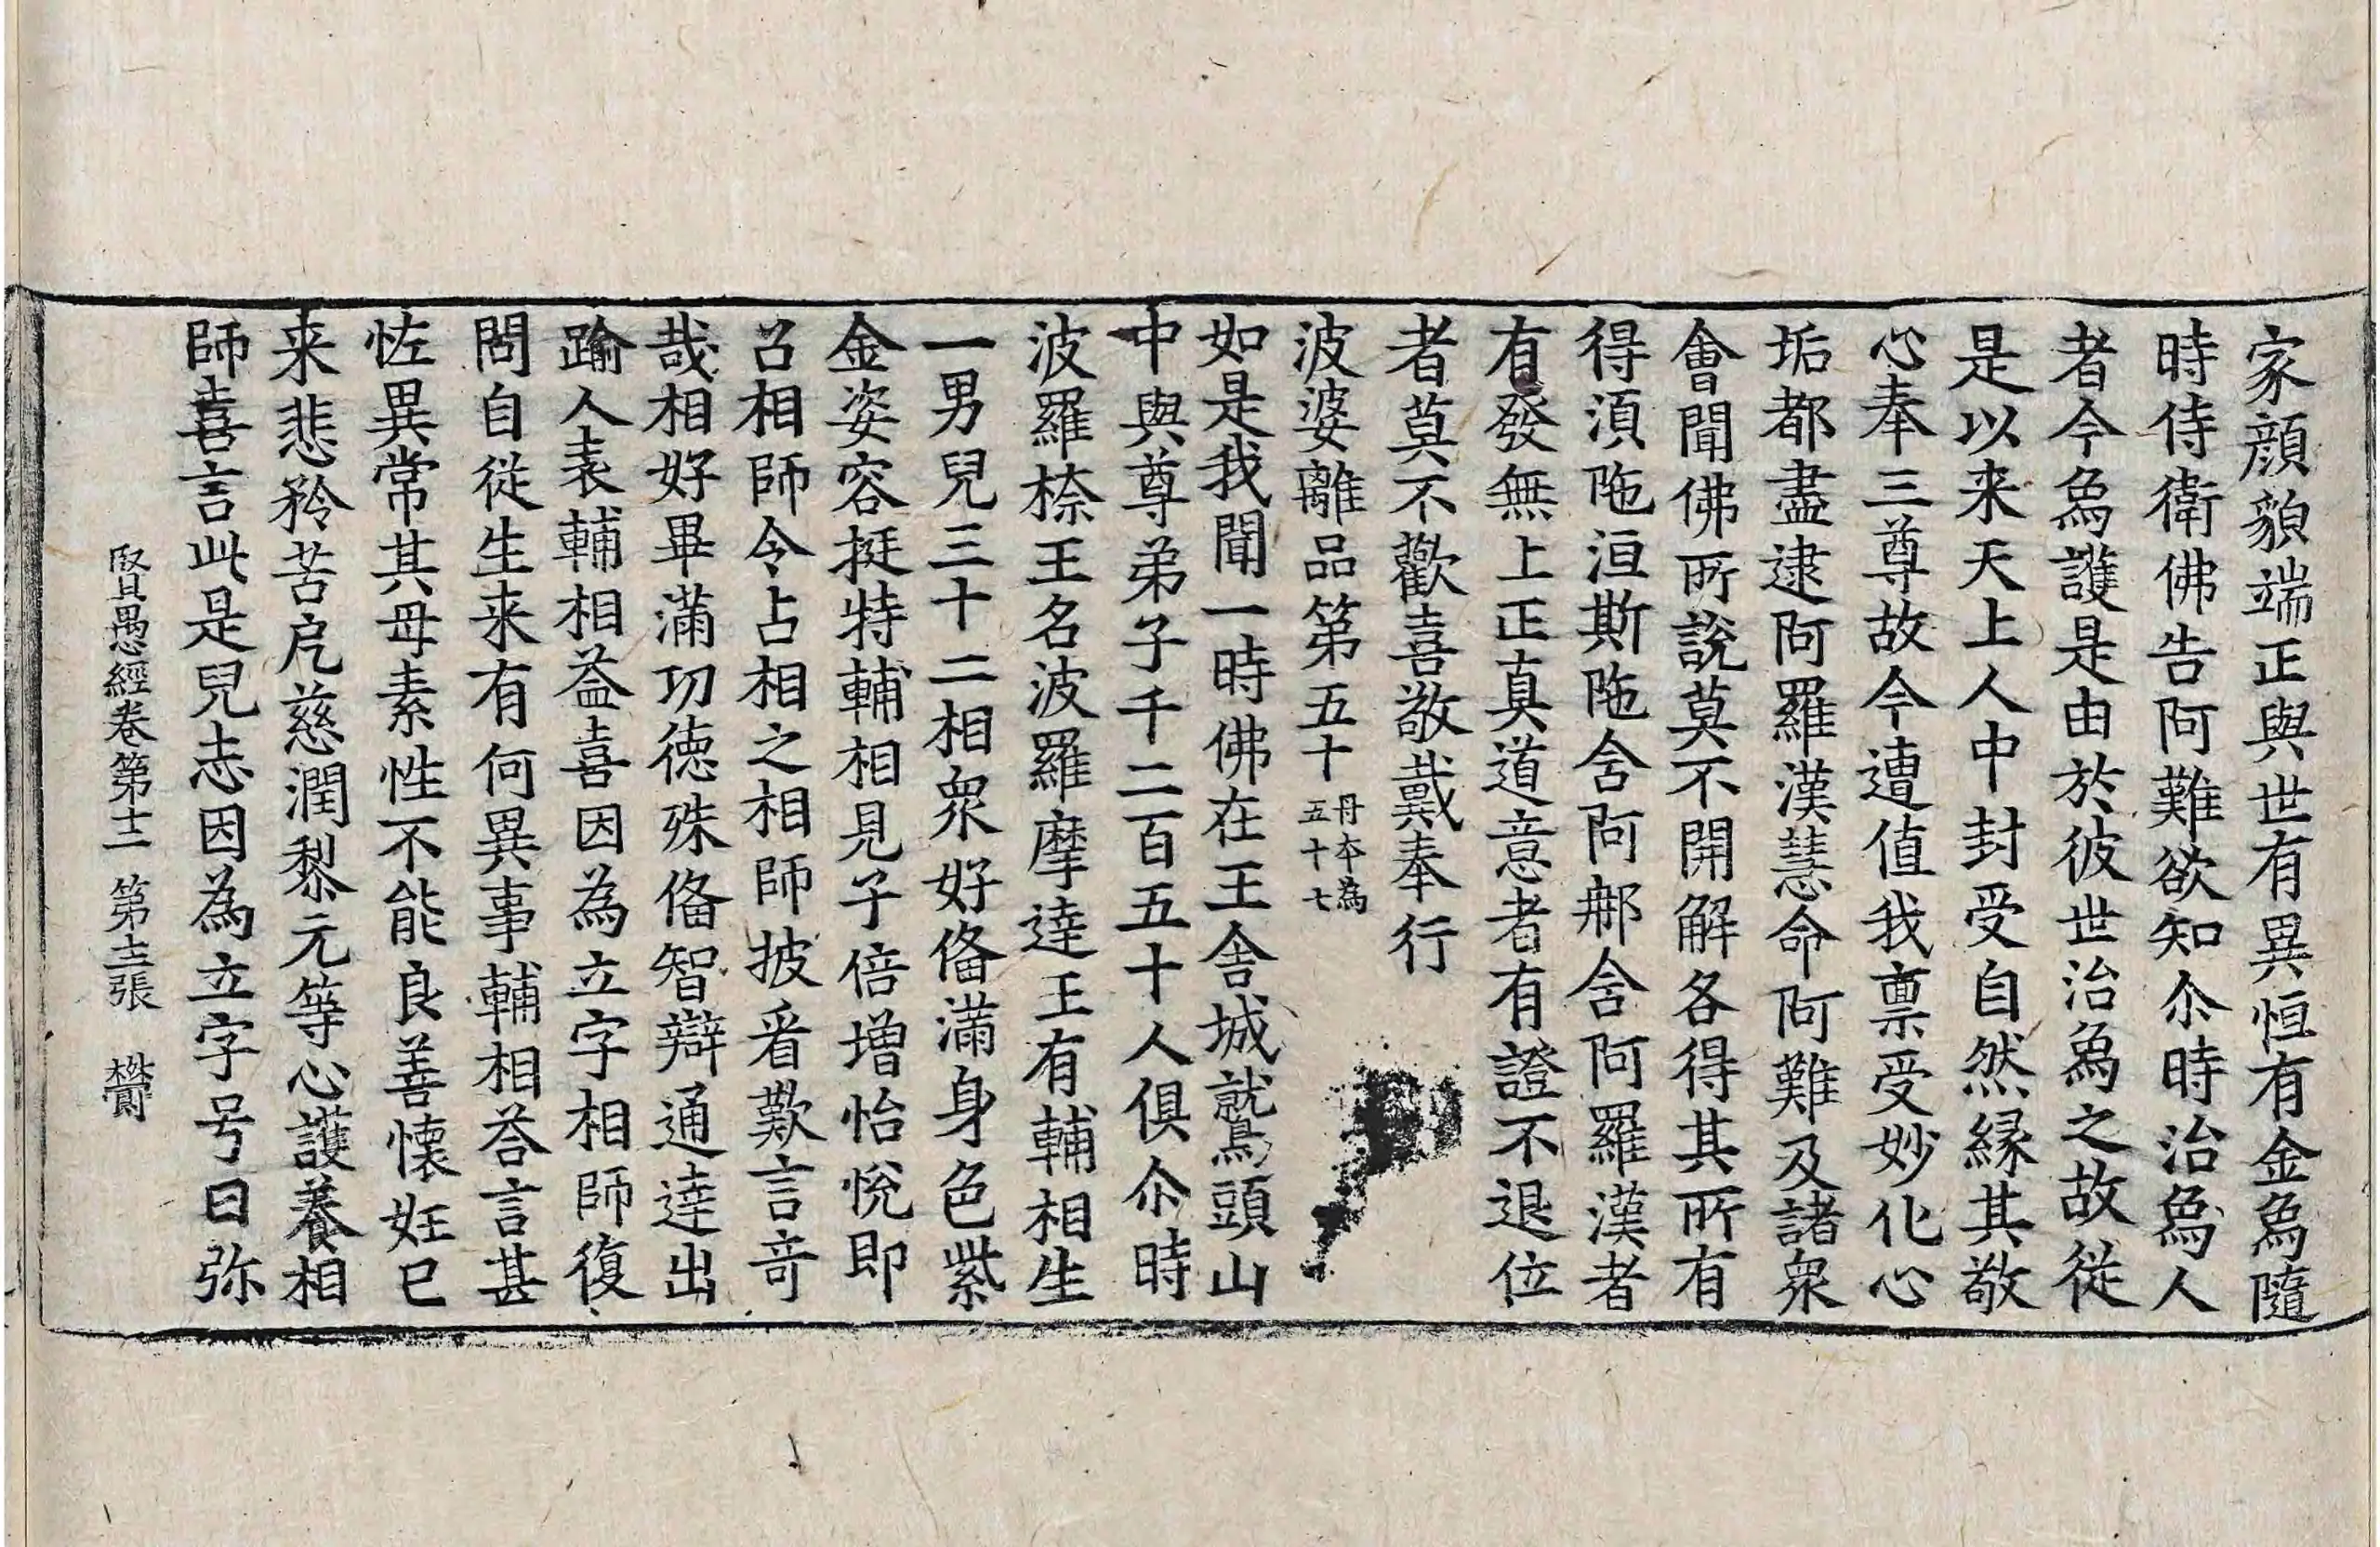 家顔貌端正與世有異恒有金爲隨
時侍衛佛告阿難欲知尒時治爲人
者今爲護是由於彼世治爲之故從
是以来天上人中封受自然緣其敬
心奉三尊故今遭值我禀受妙化心
垢都盡逮阿羅漢慧命阿難及諸衆
會聞佛所說莫不開解各得其所有
得湏陁洹斯陁含阿那含阿羅漢者
有發無上正真道意者有證不退位
者莫不歡喜敬戴奉行
波婆離品第五十 丹本為五十七
如是我聞一時佛在王舎城鷲頭山
中與尊弟子千二百五十人俱尒時
波羅㮈王名波羅摩達王有輔相生
一男兒三十二相衆好俻滿身色紫
金姿容挺特輔相見子倍增怡悅即
召相師令占相之相師披㸔歎言奇
哉相好畢滿功德殊俻智辯通達出
踰人表輔相益喜因為立字相師復
問自從生来有何異事輔相荅言甚
恠異常其母素性不能良善懷妊已
来悲矜苦厄慈潤黎元等心護養相
師喜言此是兒志因為立字号曰弥
賢愚經卷第十二 第十二張 欝